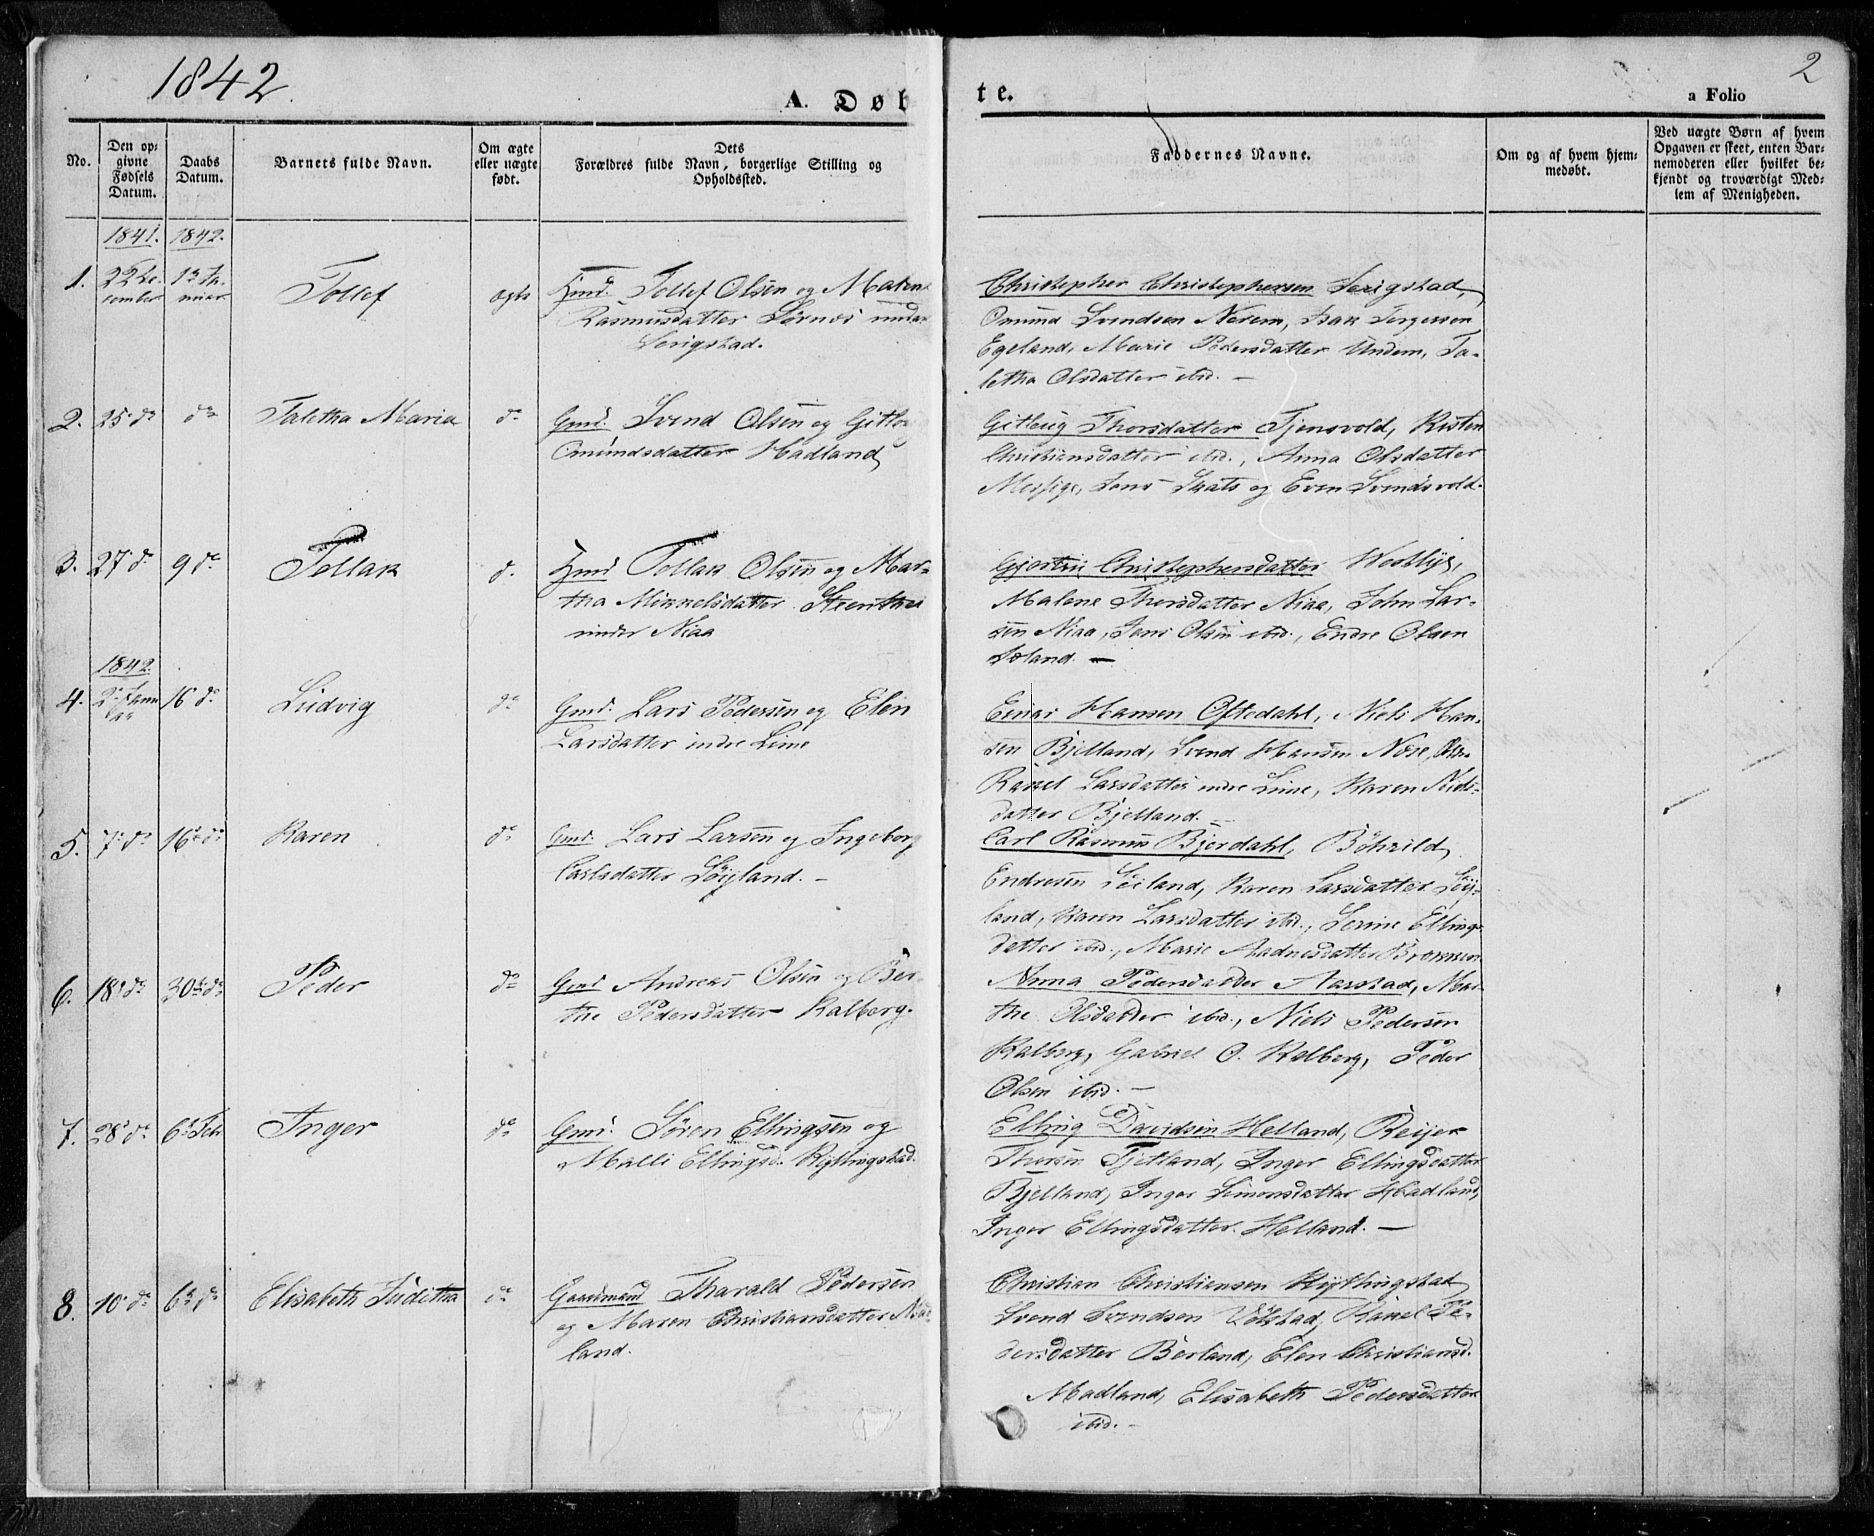 1842.
A. Døb
te.
2
a Folio
No.
Den op-
givne
Fødsels
Datum.
Daabs
Datum.
Barnets fulde Navn.
Om ægte
eller uægte
født.
Dets
Forældres fulde Navn, borgerlige Stilling og
Opholdssted.
Faddernes Navne.
Om og af hvem hjem-
medøbt.
Ved uægte Børn af hvem
Opgaven er skeet, enten Bar-
nemoderen eller hvilket be-
kjendt og troværdigt Med-
lem af Menigheden.
1841. 1842.
1.
22 De-
cember
1 Ja-
nuar
Tollef
ægte
Hmd. Tollef Olsen og Malene
Rasmusdatter Sørnæs under
Serigstad.
Christopher Christophersen Serigstad,
Omund Svendsen Nesem, Isak Torgersen
Egeland, Marie Pedersdatter Undem, Ta-
letha Olsdatter ibd. —
2. 25 do
do
Taletha Maria
do
Gmd. Svend Olsen og Gitlou
Omundsdatter Hadland
Gitloug Thorsdatter Tjensvold, Kisten
Christiansdatter ibd., Anna Olsdatter
Mossige, Jens Skats og Even Svendsvold.
3. 27 do
9 do
Tollak
do
Hmd Tollak Olsen og Mar-
tha Mikkelsdatter Steenthei
under Niaa
Gjertrü Christophersdatter Westlye,
Malene Thorsdatter Niaa, John Lar-
sen Niaa, Jens Olsen ibd., Endre Olsen
Soland. —
1842.
4.
2 Janu
ar
16 do
Ludvig
do
Gmd. Lars Pedersen og Elen
Larsdatter indre Lime
Einar Hansen Oftedahl, Niels Han-
sen Bjelland, Svend Hansen Nose,
Rakel Larsdatter indre Lime, Karen Niels-
datter Bjelland.
5. 7 do
16 do
Karen
do
Gmd. Lars Larsen og Ingeborg
Carlsdatter Löyland. —
Carl Rasmus Bjerdahl, Böhrild
Endresen Leiland, Karen Larsdatter Löy-
land, Karen Larsdatter ibd., Serine Ellings-
datter ibd., Marie Aadnesdatter
6. 18 do
30 do
Peder
do
Gmd Andreas Olsen og Ber-
the Pedersdatter Kalberg.
Anna Pedersdatter Aarstad, Mar-
the Olsdatter ibd., Niels Pedersen
Kalberg, Gabriel O. Kalberg, Peder
Olsen ibd. —
7. 28 do
6 Febr
Inger
do
Gmd. Sören Ellingsen og
Malli Ellingsd. Kyllingstad.
Elling Davidsen Helland, Reijer
Thorsen Tjetland, Inger Ellingsdatter
Bjelland, Inger Simonsdatter Hadland,
Inger Ellingsdatter Helland. —
8. 10 do
6 do
Elisabeth Juditha
do
Gaardmand Tharald Pedersen
og Maren Christiansdatter Mad-
land.
Christian Christiansen Kyllingstad,
Svend Svendsen Vølstad, Kanel Pe-
dersdatter Berland, Elen Christiansd.
Madland, Elisabeth Pedersdatter
ibd. —